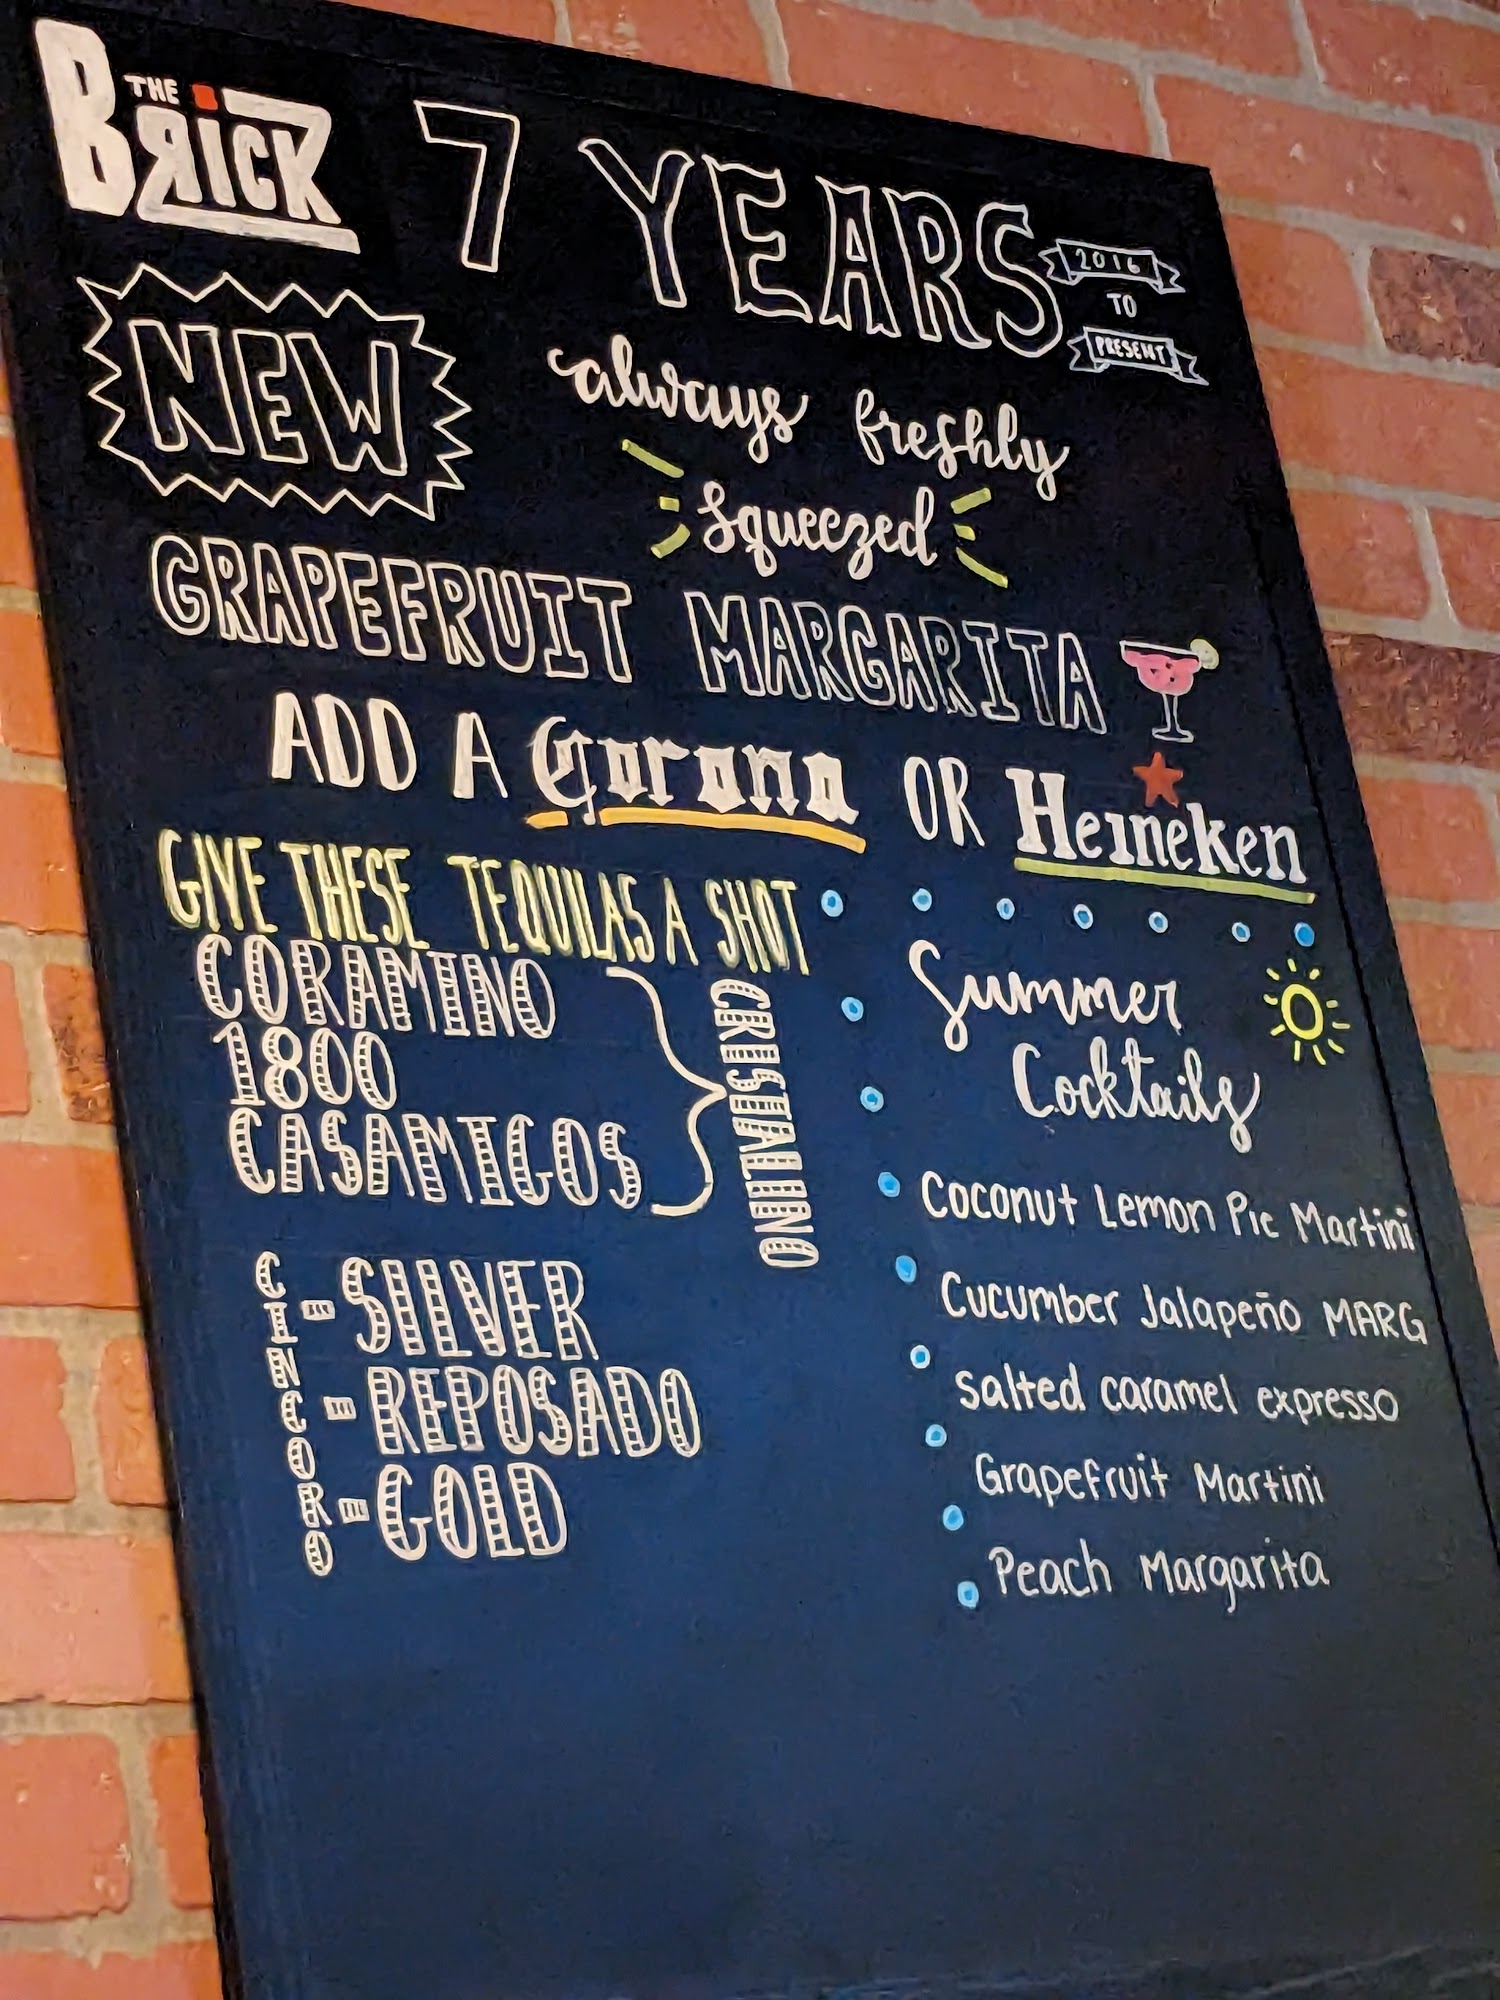 THE
BRICK
7 YEARS
2016
TO
PRESENT
NEW
always freshly
squeezed
GRAPEFRUIT MARGARITA
ADD A Corona OR Heineken
GIVE THESE TEQUILAS A SHOT
CORAMINO
1800
CASAMIGOS
CRISTALINO
CINCORO
- SILVER
- REPOSADO
- GOLD
Summer
Cocktails
Coconut Lemon Pie Martini
Cucumber Jalapeño MARG
Salted caramel expresso
Grapefruit Martini
Peach Margarita